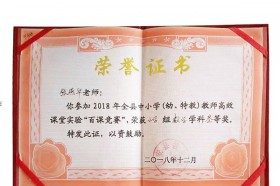 荣誉证书
老师：
你参加2018年全县中小学(幼、特教)教师高效
课堂实验“百课竞赛”，荣获 组 学科 等奖，
特发此证，以资鼓励。
二〇一八年十二月